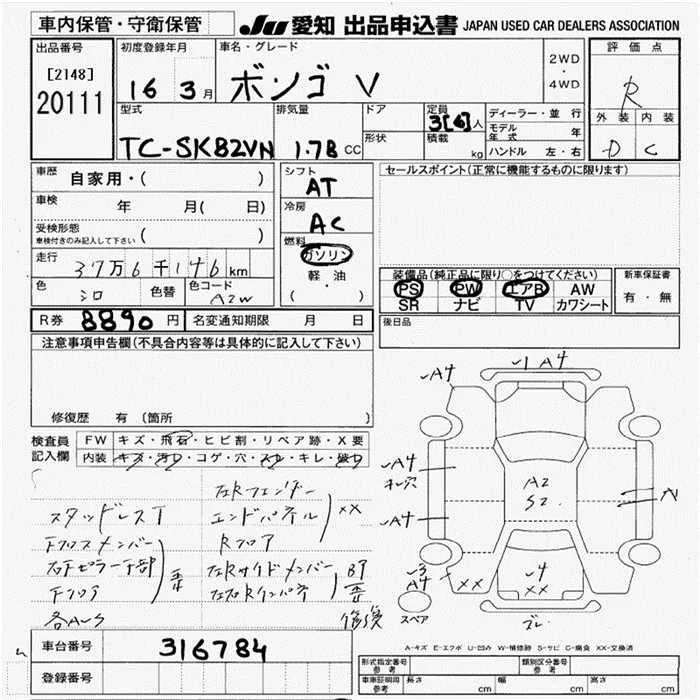 車内保管・守衛保管
JU 愛知 出品申込書 JAPAN USED CAR DEALERS ASSOCIATION
出品番号
[2148]
20111
初度登録年月
16年 3月
車名・グレード
ボンゴ V
2WD
・
4WD
評価点
R
外装 内装
D C
型式
TC-SK82VN
排気量
1.78 CC
ドア
形状
定員
3[6]人
積載
kg
ディーラー・並行
モデル年式 年
ハンドル 左・右
車歴
自家用・( )
車検
年 月( 日)
受検形態
車検付きのみ記入して下さい ( )
走行
37万6千146km
色
シロ
色替
色コード
A2W
シフト
AT
冷房
AC
燃料
ガソリン
軽油
( ・ )
セールスポイント(正常に機能するものに限ります)
装備品(純正品に限り○をつけてください)
PS PW エアB AW
SR ナビ TV カワシート
新車保証書
有・無
R券 8890円
名変通知期限 月 日
後日品
注意事項申告欄(不具合内容等は具体的に記入して下さい)
修復歴 有 (箇所 )
検査員
記入欄
FW キズ・飛石・ヒビ割・リペア跡・X要
内装 キズ・汚レ・コゲ・穴・スレ・キレ・破レ
スタッドレスT
左Rフェンダー
エンドパネル
Rフロア
XX
Fクロスメンバー
Fフロア
歪
左Rサイドメンバー
左右Rインパネ
BT
歪
修復
A4
1 A4
A4
穴
A4
A2
S2
A
3
A4
XX
4
XX
XX
スペア
A-キズ E-エクボ U-凹み W-補修跡 S-サビ C-腐食 XX-交換済
車台番号
316784
登録番号
形式指定番号
参考
類別区分番号
参考
車庫証明用
参考
長さ cm 幅 cm 高さ cm